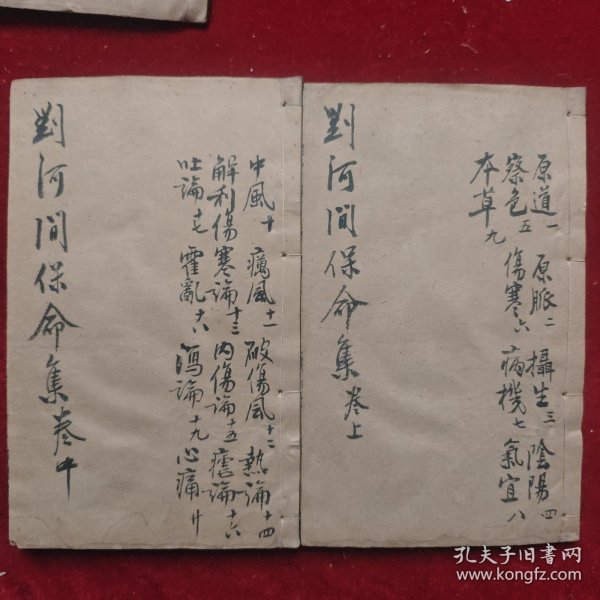 原道一 原脈二 攝生三 陰陽四
察色五 傷寒六 病機七 氣宜八
本草九
劉河間保命集卷上
中風十 癘風十一 破傷風十二 熱論十四
解利傷寒論十三 內傷論十五 瘧論十六
吐論十七 霍亂十八 瀉論十九 心痛廿
劉河間保命集卷中
孔夫子旧书网
www.kongfz.com